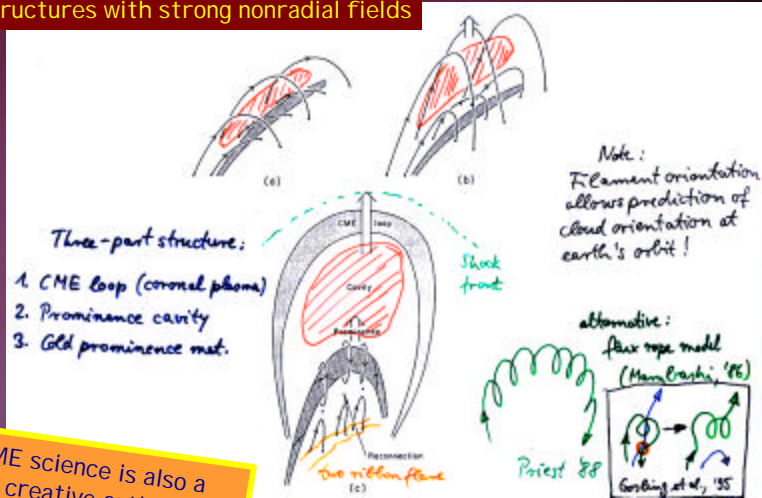 ructures with strong nonradial fields
(a)
(b)
Note :
Filament oriantation
allows prediction of
cloud orientation at
earth's orbit !
Three-part structure:
1. CME loop (coronal plasma)
2. Prominence cavity
3. Cold prominence mat.
CME loop
Shock
front
Cavity
Prominence
Reconnection
two ribbon flare
(c)
alternative :
flux rope model
'86)
Priest '88
Gosling et al., '95
ME science is also a
creative